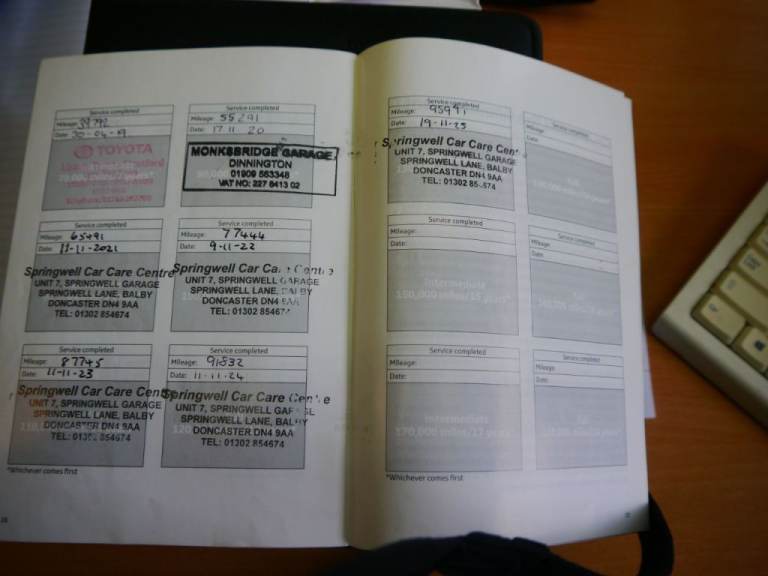 Service completed
Mileage:
Date: 30-04-19
TOYOTA
Service completed
Mileage: 55291
Date: 17 11 20
MONKSBRIDGE GARAGE
DINNINGTON
01909 563348
VAT NO: 227 8413 02
Service completed
Mileage: 65491
Date: 11-11-2021
Springwell Car Care Centre
UNIT 7, SPRINGWELL GARAGE
SPRINGWELL LANE, BALBY
DONCASTER DN4 9AA
TEL: 01302 854674
Service completed
Mileage: 77444
Date: 9-11-22
Springwell Car Care Centre
UNIT 7, SPRINGWELL GARAGE
SPRINGWELL LANE, BALBY
DONCASTER DN4 9AA
TEL: 01302 854674
Service completed
Mileage: 87745
Date: 11-11-23
Springwell Car Care Centre
UNIT 7, SPRINGWELL GARAGE
SPRINGWELL LANE, BALBY
DONCASTER DN4 9AA
TEL: 01302 854674
Service completed
Mileage: 91832
Date: 11-11-24
Springwell Car Care Centre
UNIT 7, SPRINGWELL GARAGE
SPRINGWELL LANE, BALBY
DONCASTER DN4 9AA
TEL: 01302 854674
*Whichever comes first
Service completed
Mileage: 95941
Date: 19-11-25
Springwell Car Care Centre
UNIT 7, SPRINGWELL GARAGE
SPRINGWELL LANE, BALBY
DONCASTER DN4 9AA
TEL: 01302
Service completed
Mileage:
Date:
Service completed
Mileage:
Date:
Intermediate
150,000 miles/15 years*
Service completed
Mileage:
Date:
Service completed
Mileage:
Date:
Intermediate
170,000 miles/17 years*
Service completed
Mileage:
Date:
*Whichever comes first